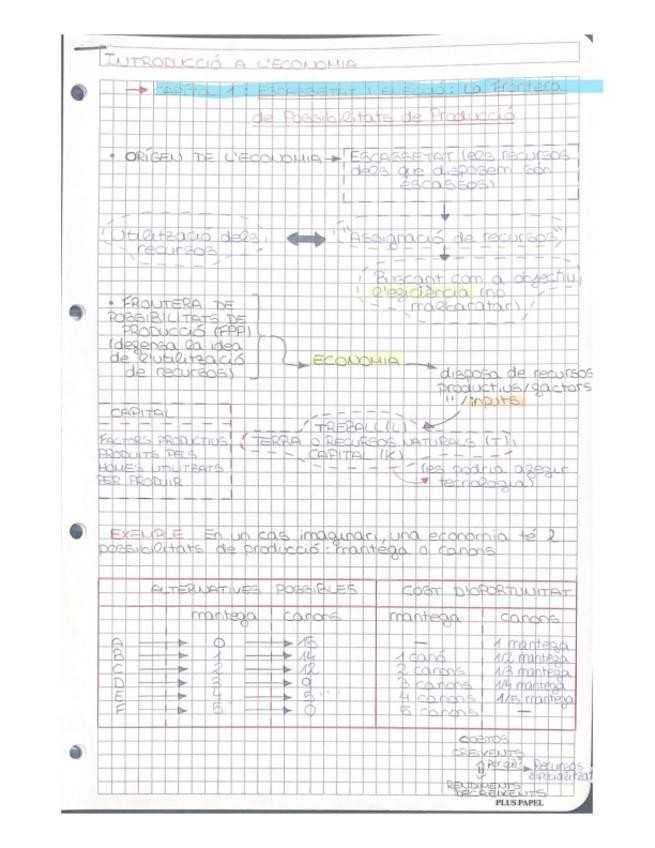 INTRODUCCIÓ A L'ECONOMIA
→ CAPÍTOL 1: ESCASSETAT I ELECCIÓ: La Frontera
de Possibilitats de Producció
• ORÍGEN DE L'ECONOMIA → ESCASSETAT (els recursos
dels que disposem són
escassos)
Utilització dels
recursos
"Assignació de recursos"
Buscant com a objectiu
l'eficiència (no
malbaratar)
• FRONTERA DE
POSSIBILITATS DE
PRODUCCIÓ (FPP)
(defensa la idea
de l'utilització
de recursos)
ECONOMIA
disposa de recursos
productius/factors
"/inputs
CAPITAL
FACTORS PRODUCTIUS
PRODUITS PELS
HOMES UTILITZATS
PER PRODUIR
TREBALL (L)
TERRA O RECURSOS NATURALS (T)
CAPITAL (K)
(es podria afegir
tecnologia)
EXEMPLE En un cas imaginari, una economia té 2
possibilitats de producció: mantega o canons
ALTERNATIVES POSSIBLES COST D'OPORTUNITAT
mantega canons mantega canons
A 0 15 — 1 mantega
B 1 14 1 canó 1/2 mantega
C 2 12 2 canons 1/3 mantega
D 3 9 3 canons 1/4 mantega
E 4 5 4 canons 1/5 mantega
F 5 0 5 canons —
COSTOS
CREIXENTS
Per què? → Recursos
especialitzats
RENDIMENTS
DECREIXENTS
PLUS PAPEL